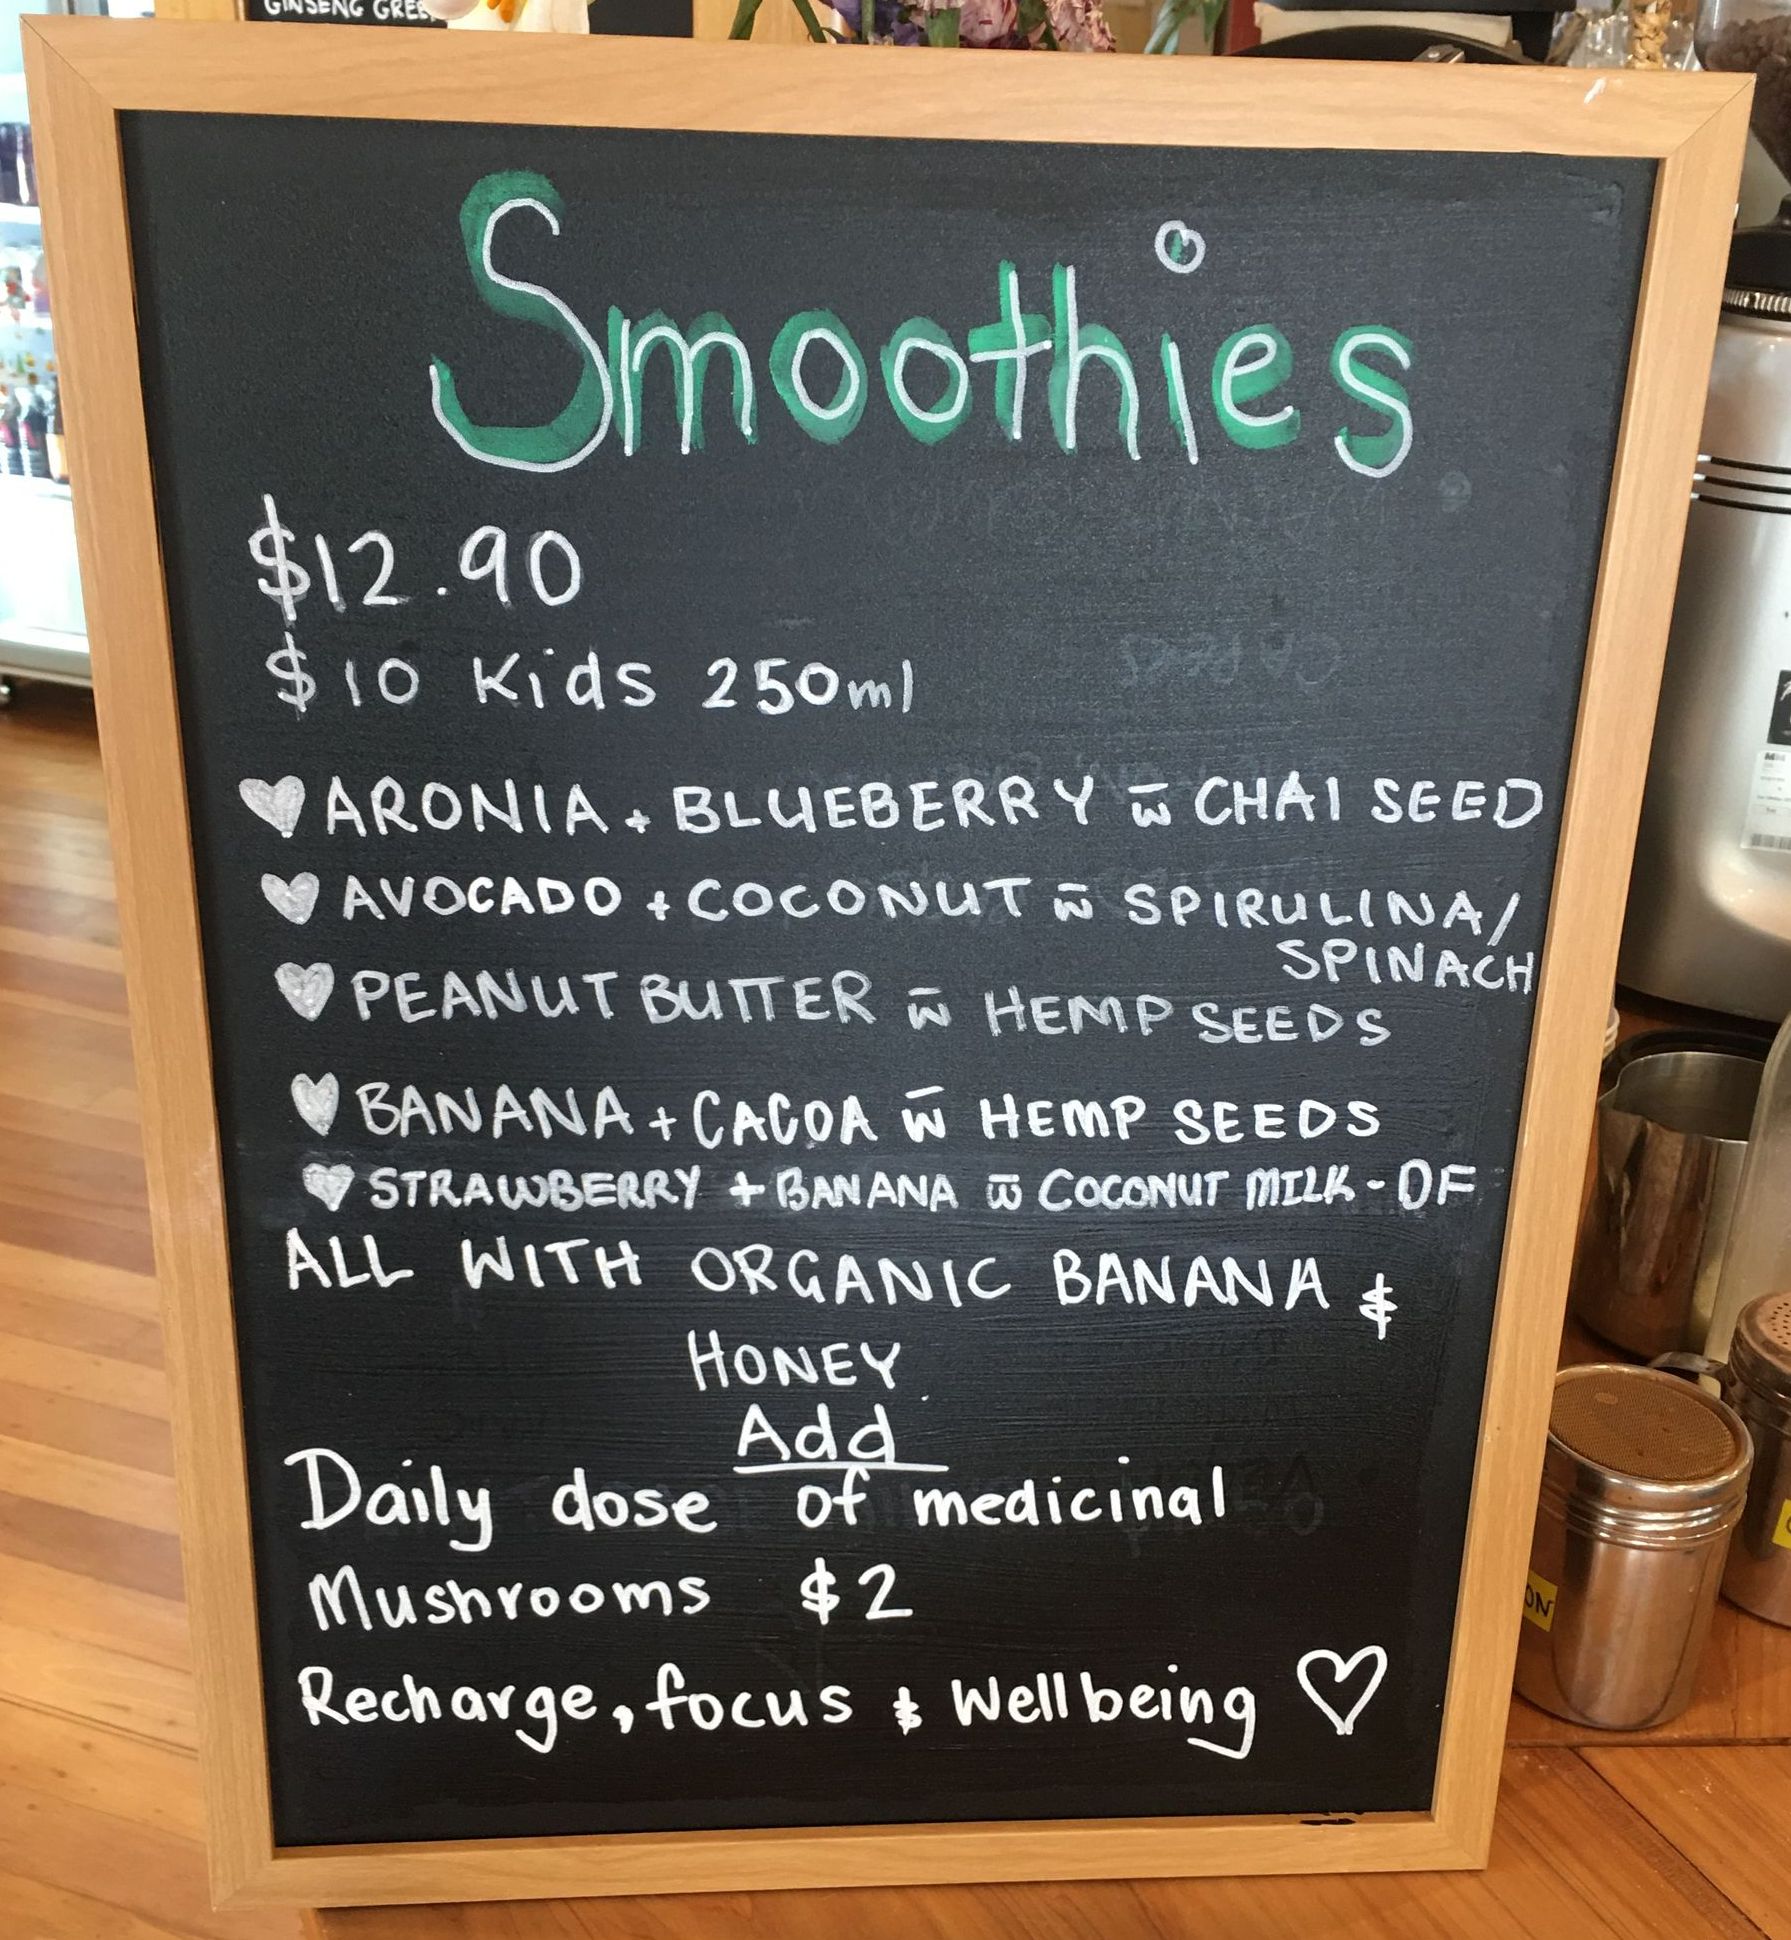 GINSENG GREE
Smoothies
$12.90
$10 Kids 250ml
ARONIA + BLUEBERRY w̄ CHAI SEED
AVOCADO + COCONUT w̄ SPIRULINA/
SPINACH
PEANUT BUTTER w̄ HEMP SEEDS
BANANA + CACOA w̄ HEMP SEEDS
STRAWBERRY + BANANA w̄ COCONUT MILK - DF
ALL WITH ORGANIC BANANA &
HONEY
Add
Daily dose of medicinal
Mushrooms $2
Recharge, focus & Wellbeing ♡
ON